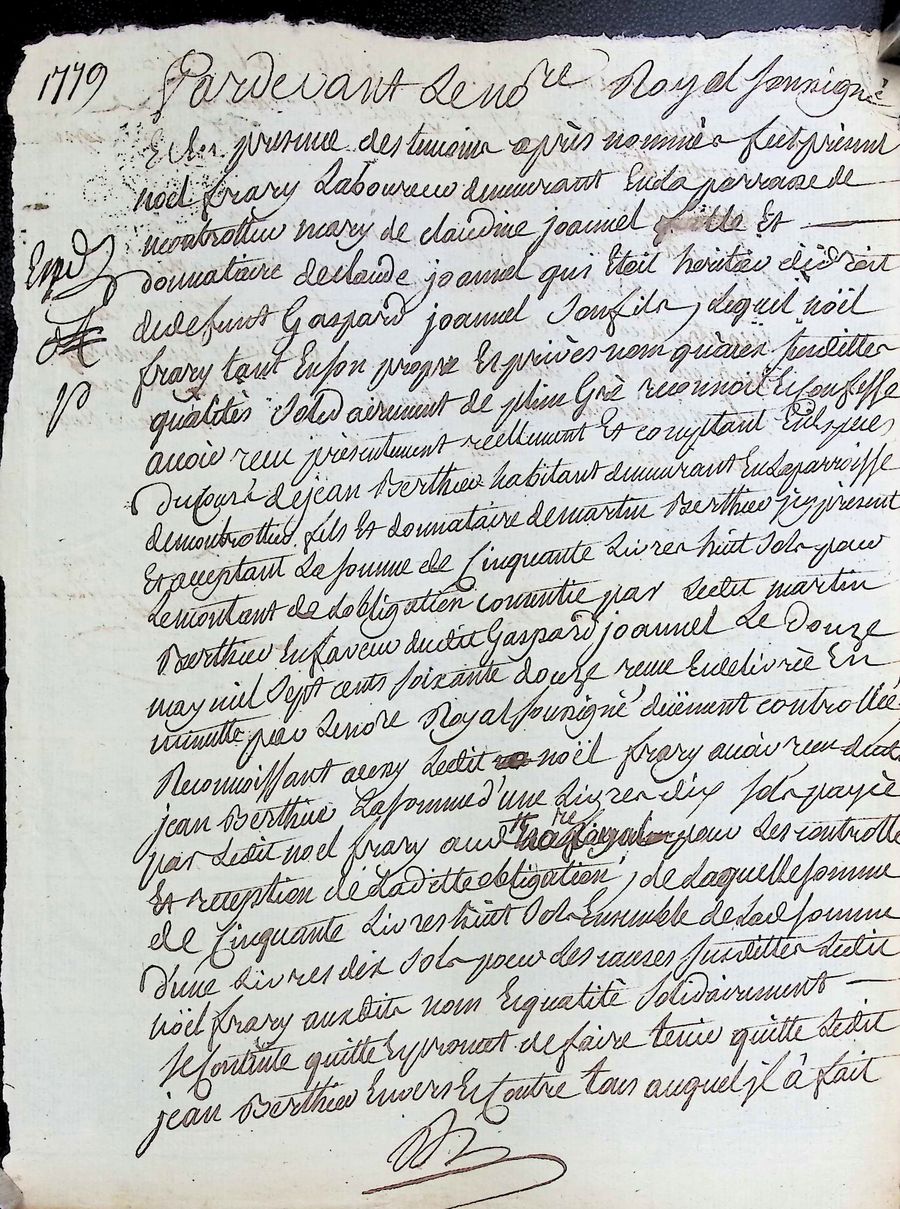 1779
Pardevant Le nore Royal soussigné
Et les presence des temoins après nommés feut présent
noël frary Laboureur demeurant En La parroisse de
montrottier mary de claudine joannel fille Et
donnataire de claude joannel qui Etoit heritier de droit
Expd
de defunt Gaspard joannel son fils, Lequel noël
frary tant En son propre Et privés nom qu'aux susdittes
qualités solidairement de plein Gré reconnoit Et confesse
avoir reçu présentement réellement Et comptant En Especes
Du Cours de jean Berthier habitant demeurant En La parroisse
de montrottier fils Et donnataire de martin Berthier jcy présent
Et acceptant La somme de Cinquante Livres huit sols pour
Le montant de L'obligation consentie par Ledit martin
Berthier En faveur dudit Gaspard joannel Le Douze
may mil sept cents soixante douze reçue Et delivrée En
minutte par Le nore Royal soussigné düement controllée
Reconnoissant aussy Ledit noël frary avoir reçu dudit
jean Berthier La somme d'une Livres dix sols payée
par Ledit noel frary audit nore Royal pour Les controlle
Et reception de Laditte obligation, de Laquelle somme
de Cinquante Livres huit sols Ensemble de Lad somme
d'une Livres dix sols pour des causes susdittes Ledit
noël frary auxdits nom Et qualité solidairement
se Contente quitte Et promet de faire tenir quitte Ledit
jean Berthier Envers Et Contre tous auquel jl à fait